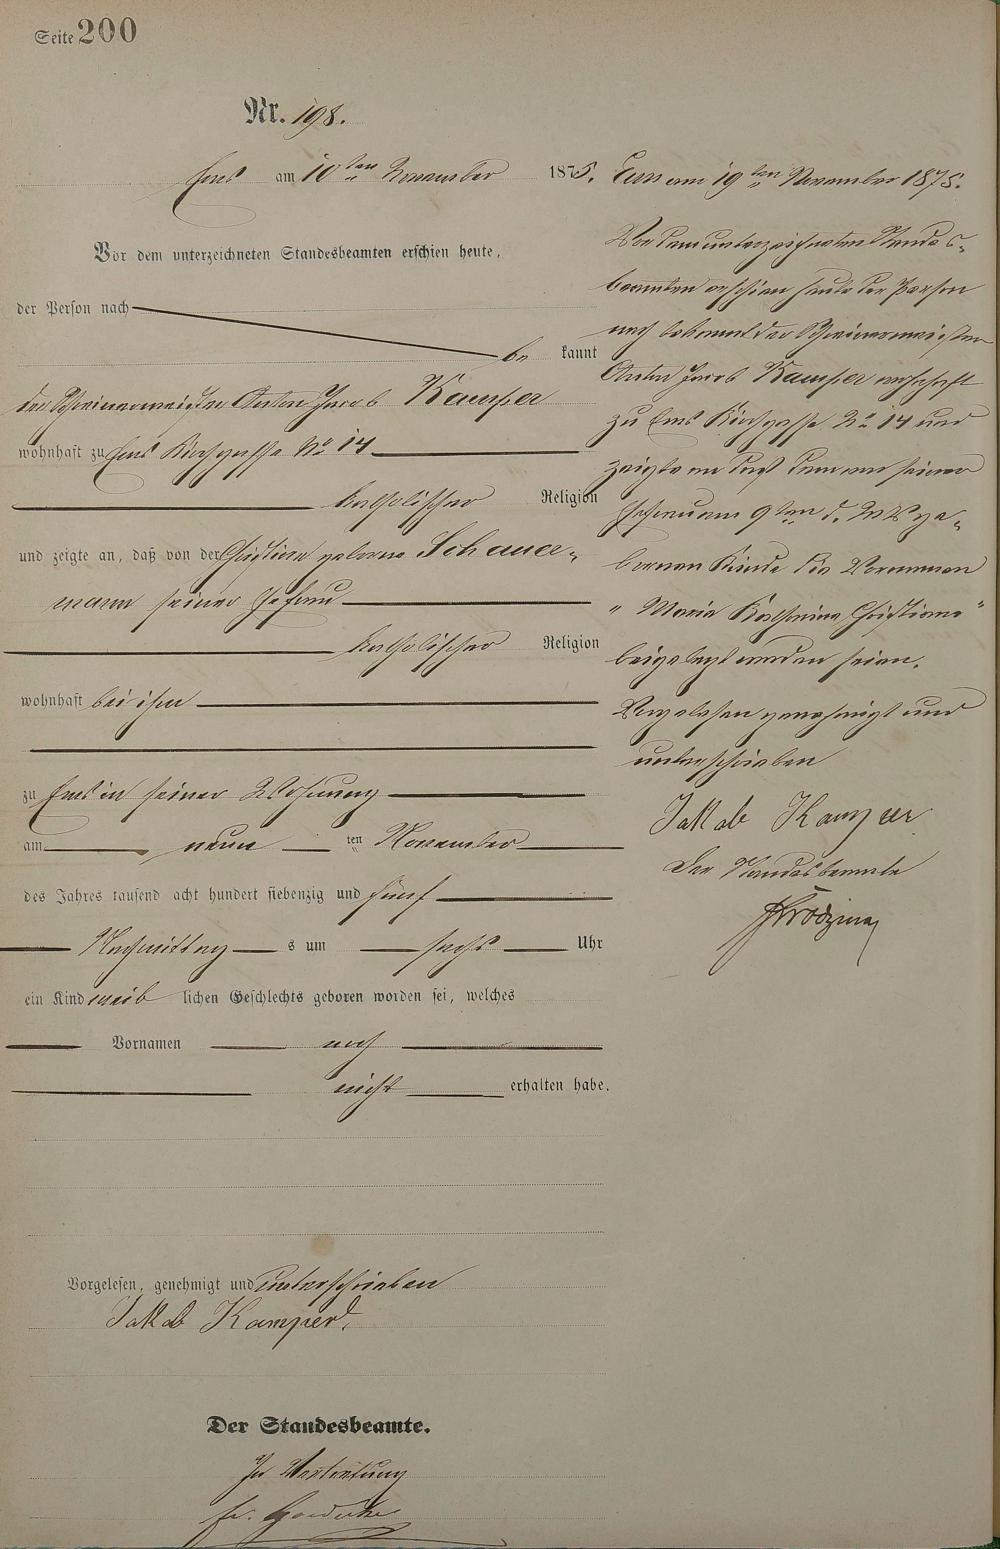 Seite 200
Nr. 198.
Ems am 10ten November 1875.
Vor dem unterzeichneten Standesbeamten erschien heute,
der Person nach
be kannt
der Schreinermeister Anton Jacob Kamper
wohnhaft zu Ems Kirchgasse No 14
katholischer Religion
und zeigte an, daß von der Christiane geborene Schauer-
mann seiner Ehefrau
katholischer Religion
wohnhaft bei ihm
zu Ems in seiner Wohnung
am neun ten November
des Jahres tausend acht hundert siebenzig und fünf
Nachmittag s um sechs Uhr
ein Kind weib lichen Geschlechts geboren worden sei, welches
Vornamen noch
nicht erhalten habe.
Vorgelesen, genehmigt und unterschrieben
Jakob Kamper.
Der Standesbeamte.
In Vertretung
Ems am 19ten November 1875.
Vor dem unterzeichneten Standes-
beamten erschien heute der Person
nach bekannt der Schreinermeister
Anton Jacob Kamper wohnhaft
zu Ems Kirchgasse No 14 und
zeigte an daß dem von seiner
Ehefrau am 9ten d. Mts ge-
bornen Kinde die Vornamen
"Maria Katharina Christiane"
beigelegt worden seien.
Vorgelesen genehmigt und
unterschrieben
Jakob Kamper
Der Standesbeamte